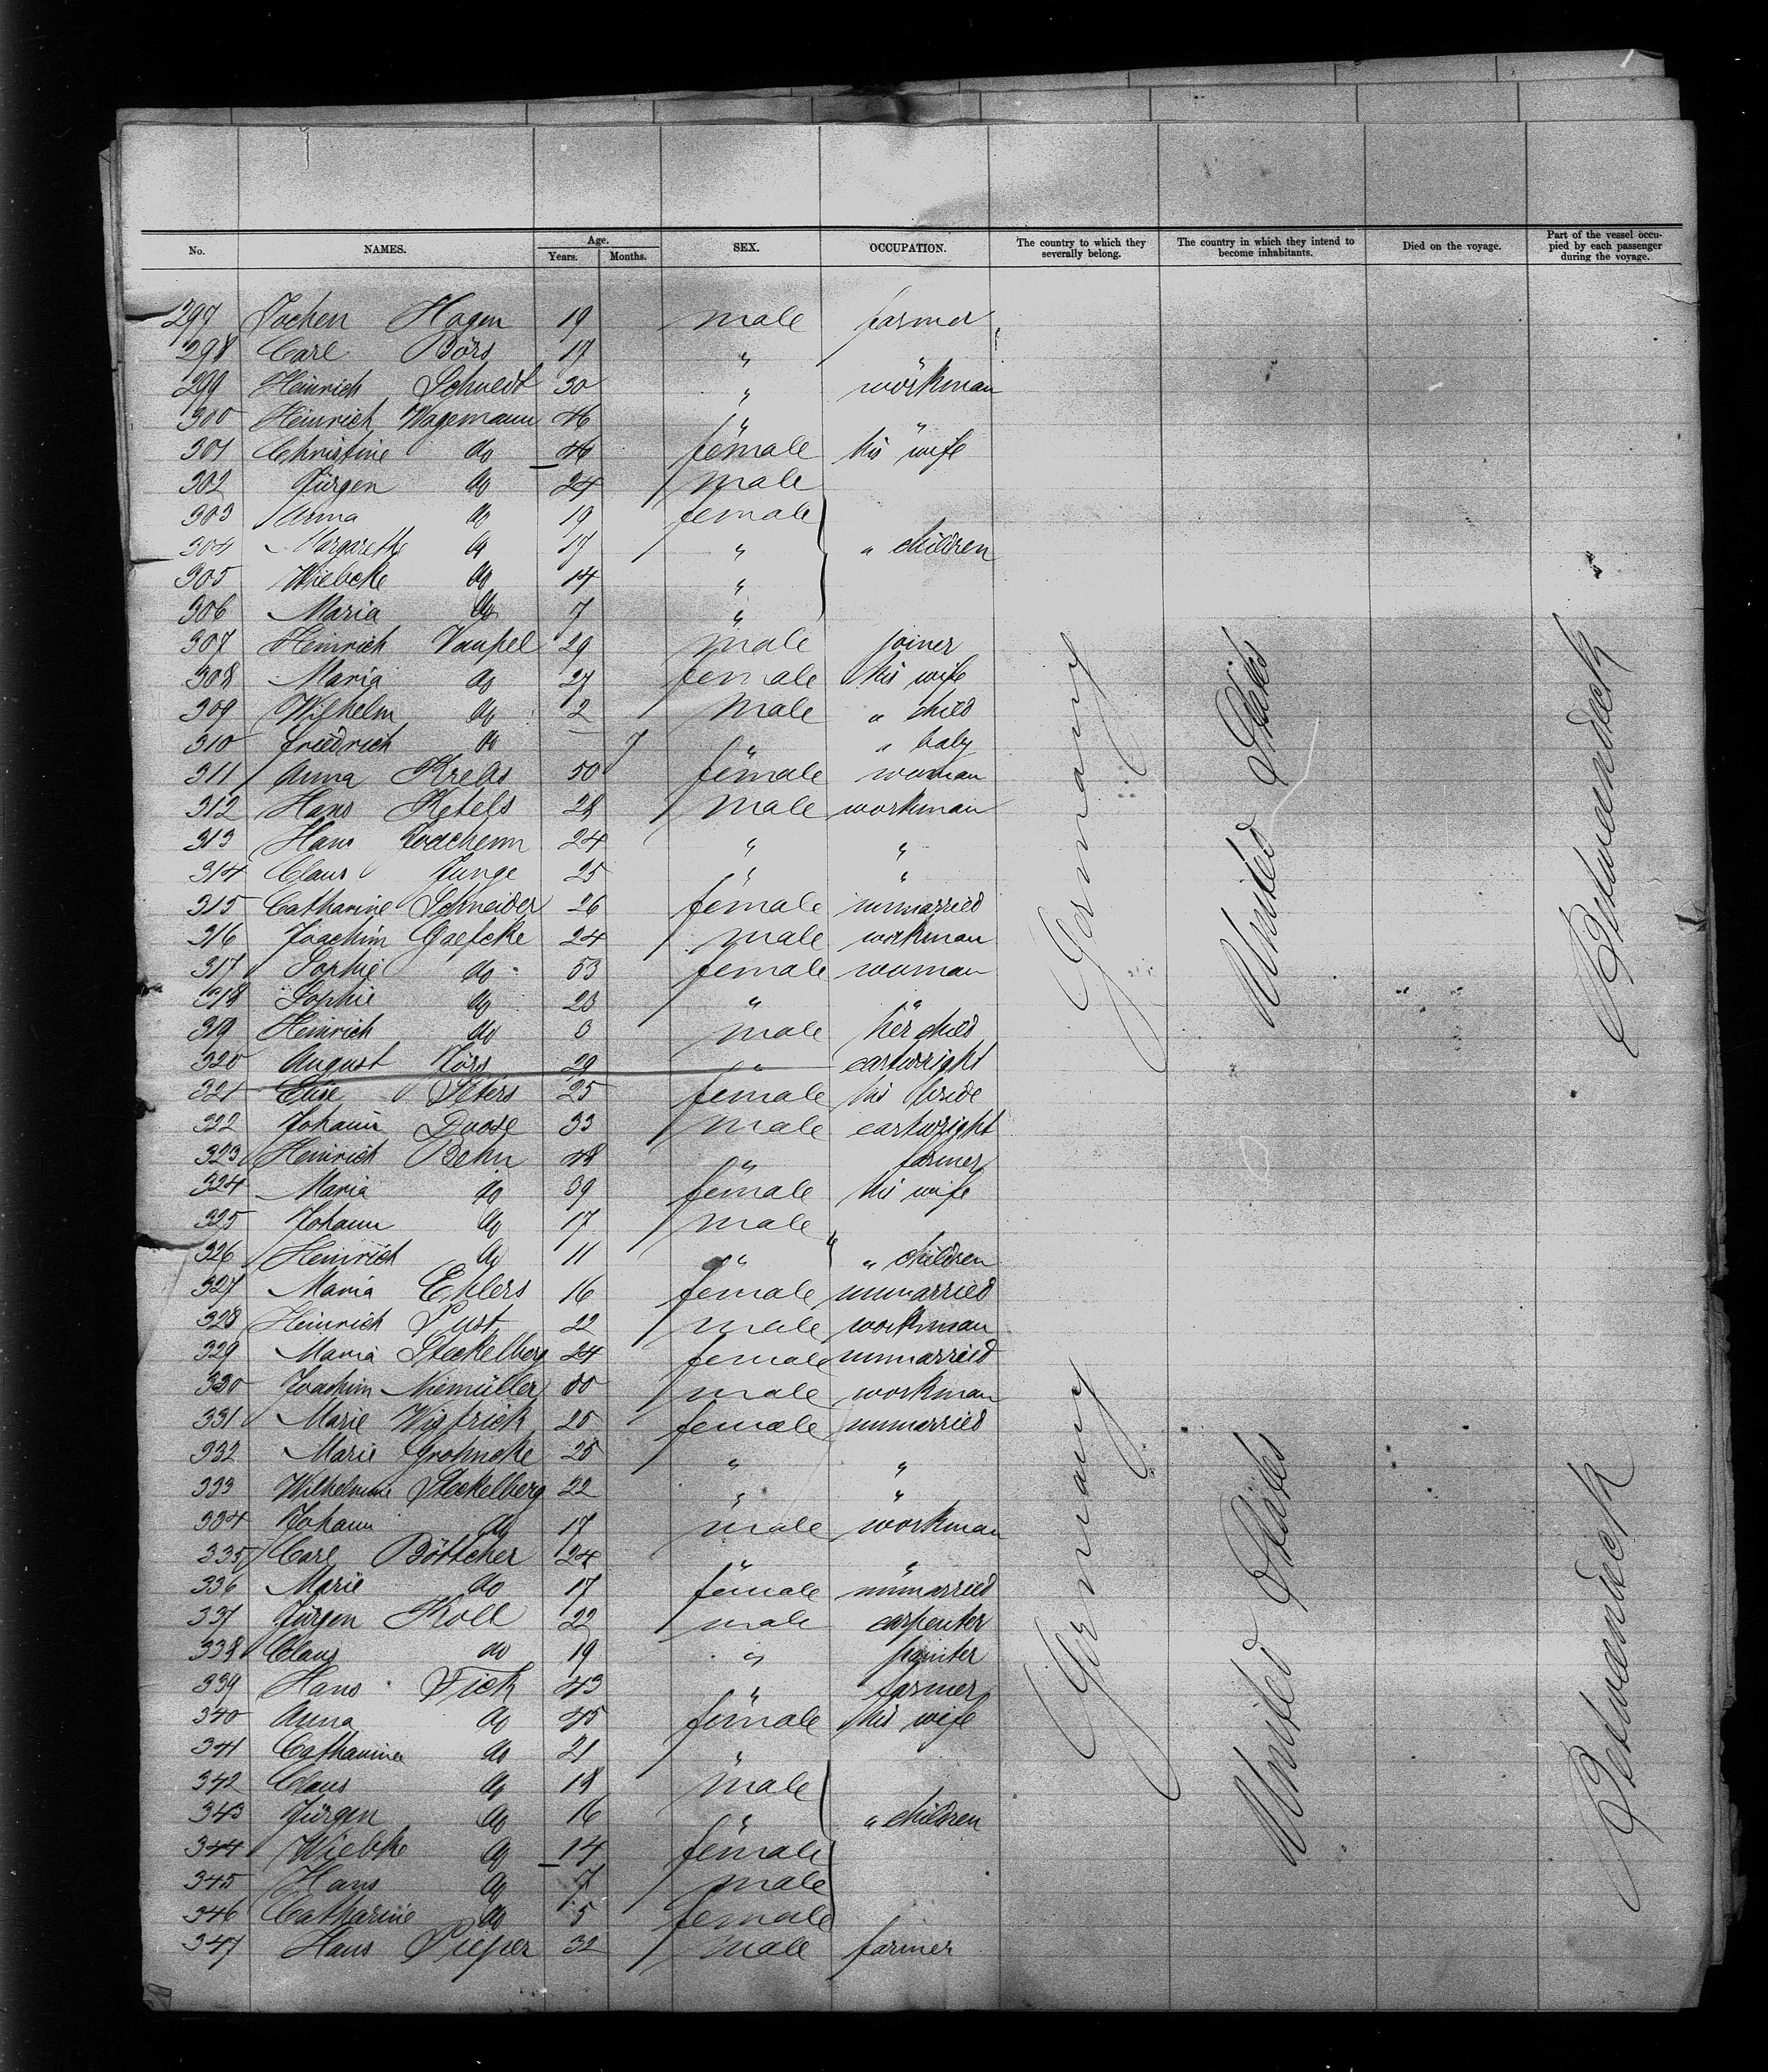 No. NAMES. Age. Years. Months. SEX. OCCUPATION. The country to which they severally belong. The country in which they intend to become inhabitants. Died on the voyage. Part of the vessel occupied by each passenger during the voyage.
297 Jochen Hagen 19 male farmer
298 Carl Börs 17 "
299 Heinrich Schuedt 30 " workman
300 Heinrich Wagemann 46 " "
301 Christine do 46 female his wife
302 Jürgen do 24 male
303 Anna do 19 female
304 Margareth do 17 " " children
305 Wiebcke do 14 "
306 Maria do 7 "
307 Heinrich Vaupel 29 male joiner
308 Maria do 27 female his wife
309 Wilhelm do 2 male " child
310 Friedrich do — 7 " " baby
311 Anna Krebs 50 female woman
312 Hans Ketels 28 male workman
313 Hans 24 " "
314 Claus Junge 25 " "
315 Catharine Schneider 26 female unmarried
316 Joachim Gaefcke 24 male workman
317 Sophie do 53 female woman
318 Sophie do 23 " "
319 Heinrich do 3 male her child
320 August 29 " cartwright
321 Elise Peters 25 female his bride
322 Johann Doose 33 male cartwright
323 Heinrich Behn 48 " farmer
324 Maria do 39 female his wife
325 Johann do 17 male
326 Heinrich do 11 " " children
327 Maria Ehlers 16 female unmarried
328 Heinrich Lust 22 male workman
329 Maria Steckelberg 24 female unmarried
330 Joachim Niemüller male workman
331 Marie 25 female unmarried
332 Marie 25 " "
333 Wilhelmine Steckelberg 22 " "
334 Johann do 17 male workman
335 Carl Böttcher 24 " "
336 Marie do 17 female unmarried
337 Jürgen Koll 22 male carpenter
338 Claus do 19 " painter
339 Hans Fick 43 " farmer
340 Anna do 45 female his wife
341 Catharina do 21 "
342 Claus do 18 male
343 Jürgen do 16 " " children
344 Wiebke do 14 female
345 Hans do 7 male
346 Catharine do 5 female
347 Hans Pieper 32 male farmer
Germany
United States
Betweendeck
Germany
United States
Betweendeck